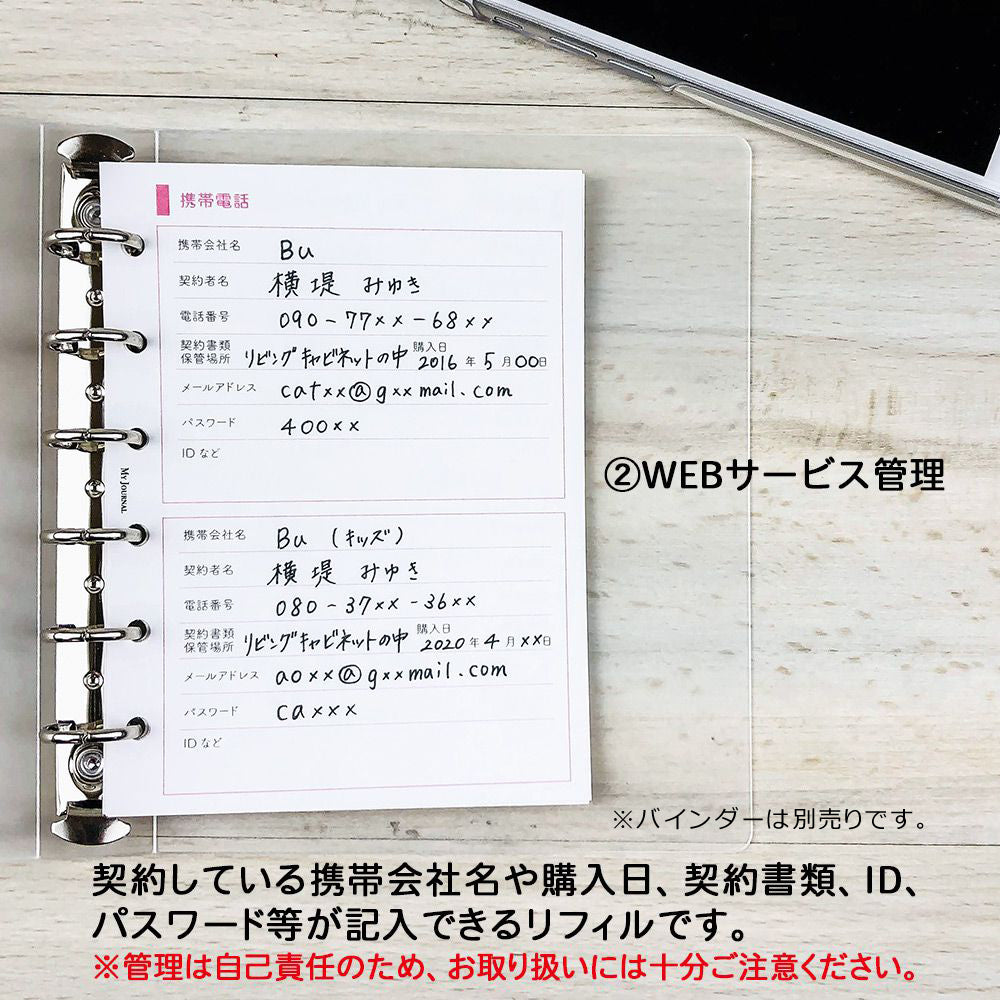 携帯電話
携帯会社名 Bu
契約者名 横堤 みゆき
電話番号 090-77××-68××
契約書類
保管場所 リビングキャビネットの中 購入日 2016年5月00日
メールアドレス cat××@g××mail.com
パスワード 400××
IDなど
MY JOURNAL
携帯会社名 Bu (キッズ)
契約者名 横堤 みゆき
電話番号 080-37××-36××
契約書類
保管場所 リビングキャビネットの中 購入日 2020年4月××日
メールアドレス ao××@g××mail.com
パスワード ca×××
IDなど
②WEBサービス管理
※バインダーは別売りです。
契約している携帯会社名や購入日、契約書類、ID、
パスワード等が記入できるリフィルです。
※管理は自己責任のため、お取り扱いには十分ご注意ください。